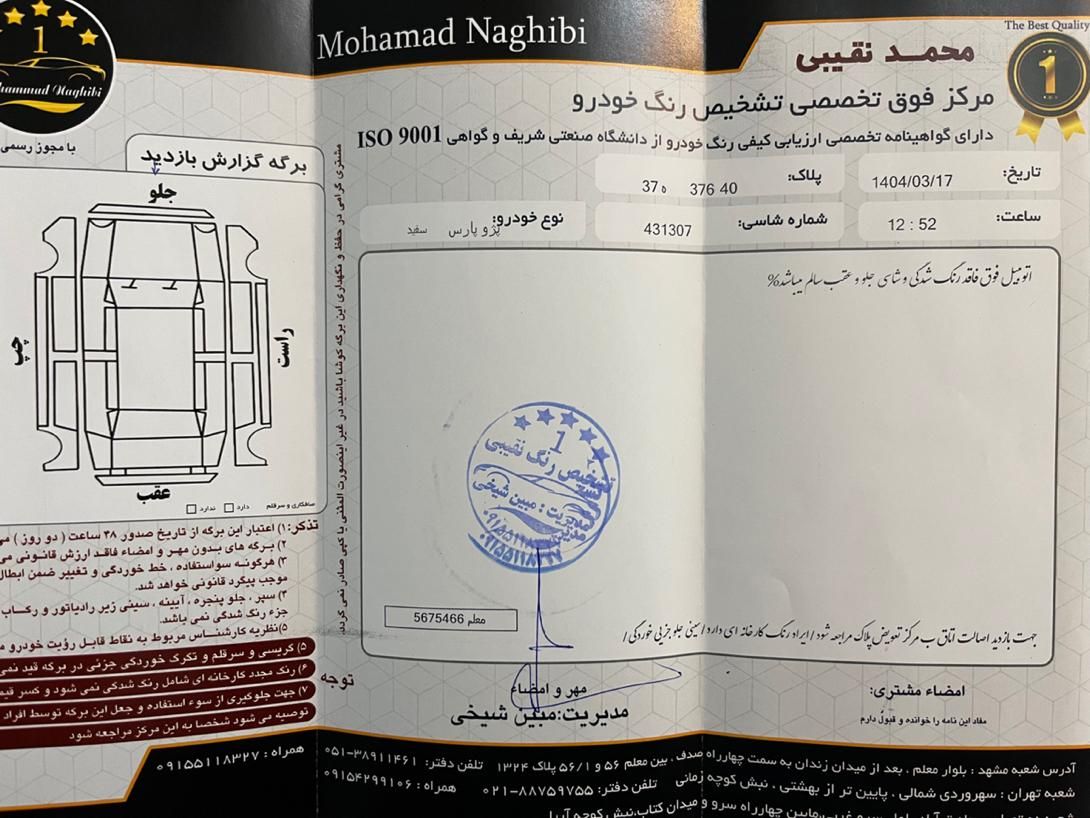 Mohamad Naghibi
The Best Quality
1
محمـد نقیبی
مرکز فوق تخصصی تشخیص رنگ خودرو
دارای گواهینامه تخصصی ارزیابی کیفی رنگ خودرو از دانشگاه صنعتی شریف و گواهی ISO 9001
تاریخ: 1404/03/17
پلاک: 40 376 ه 37
ساعت: 12 : 52
شماره شاسی: 431307
نوع خودرو: پژو پارس سفید
اتومبیل فوق فاقد رنگ شدگی و شاسی جلو و عقب سالم میباشد%
1
تشخیص رنگ نقیبی
مدیریت : مبین شیخی
معلم 5675466
جهت بازدید اصالت اتاق ب مرکز تعویض پلاک مراجعه شود / ایراد رنگ کارخانه ای دارد / سینی جلو جزیی خوردگی /
مهر و امضاء
مدیریت:مبین شیخی
امضاء مشتری:
مفاد این نامه را خوانده و قبول دارم
مشتری گرامی در حفظ و نگهداری این برگه کوشا باشید در غیر اینصورت المثنی یا کپی صادر نمی گردد.
1
hammad Naghibi
با مجوز رسمی
برگه گزارش بازدید
جلو
چپ
راست
عقب
صافکاری و سرقلم دارد ندارد
تذکر: ۱) اعتبار این برگه از تاریخ صدور ۴۸ ساعت ( دو روز ) می
۲) برگه های بدون مهر و امضاء فاقد ارزش قانونی می
۳) هرگونه سواستفاده ، خط خوردگی و تغییر ضمن ابطال
موجب پیگرد قانونی خواهد شد.
۴) سپر ، جلو پنجره ، آیینه ، سینی زیر رادیاتور و رکاب
جزء رنگ شدگی نمی باشد.
۵) نظریه کارشناس مربوط به نقاط قابل رؤیت خودرو م
۵) گریسی و سرقلم و تکرگ خوردگی جزئی در برگه قید نمی
۶) رنگ مجدد کارخانه ای شامل رنگ شدگی نمی شود و کسر قیم
۷) جهت جلوگیری از سوء استفاده و جعل این برگه توسط افراد
توصیه می شود شخصا به این مرکز مراجعه شود
توجه
همراه : ۰۹۱۵۵۱۱۸۳۲۷
آدرس شعبه مشهد : بلوار معلم ، بعد از میدان زندان به سمت چهارراه صدف ، بین معلم ۵۶ و ۵۶/۱ پلاک ۱۳۲۴ تلفن دفتر: ۳۸۹۱۱۴۶۱-۰۵۱
شعبه تهران : سهروردی شمالی ، پایین تر از بهشتی ، نبش کوچه زمانی تلفن دفتر: ۸۸۷۵۹۷۵۵-۰۲۱ همراه : ۰۹۱۵۴۲۹۹۱۰۶
مابین چهارراه سرو و میدان کتاب،نبش کوچه